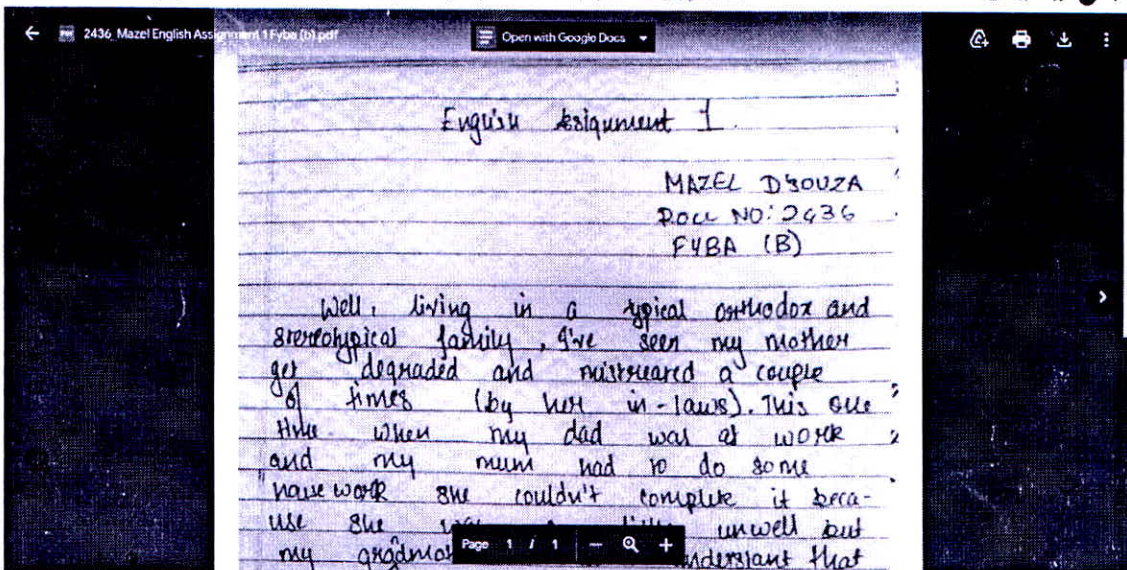 2436_Mazel English Assignment 1 Fyba (b).pdf
Open with Google Docs
English Assignment 1
MAZEL D'SOUZA
ROLL NO: 2436
FYBA (B)
Well, living in a typical orthodox and
stereotypical family, I've seen my mother
get degraded and mistreated a couple
of times (by her in-laws). This one
time when my dad was at work
and my mum had to do some
work she couldn't complete it beca-
use she unwell but
my that
Page 1 / 1